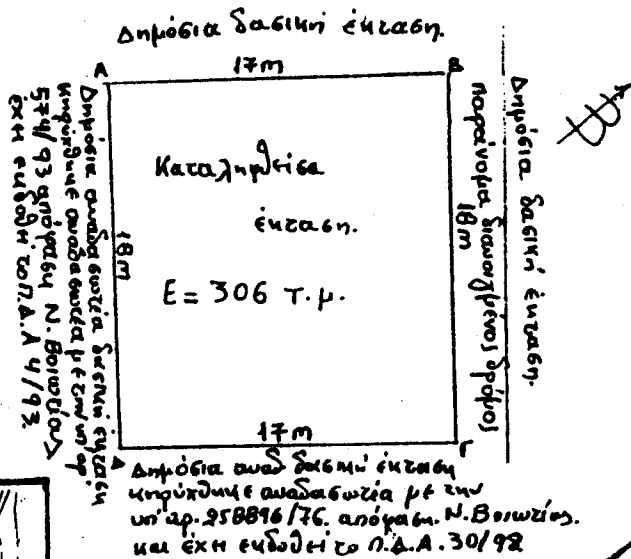 Δημόσια δασική έκταση.
Α
17m
Β
Δημόσια αναδασωτέα δασική έκταση
κηρύχθηκε αναδασωτέα με την υπ αρ.
574/93 απόφαση Ν. Βοιωτίας
έχει εκδοθη το Π.Δ.Α 4/93.
18m
Καταληφθείσα
έκταση.
Ε = 306 τ.μ.
18m
παράνομα διανοιγμένος δρόμος
Δημόσια δασική έκταση.
Β
17m
Δ
Γ
Δημόσια αναδ δασική έκταση
κηρύχθηκε αναδασωτέα με την
υπ' αρ. 258896/76. απόφαση. Ν. Βοιωτίας.
και έχει εκδοθεί το Π.Δ.Α. 30/92